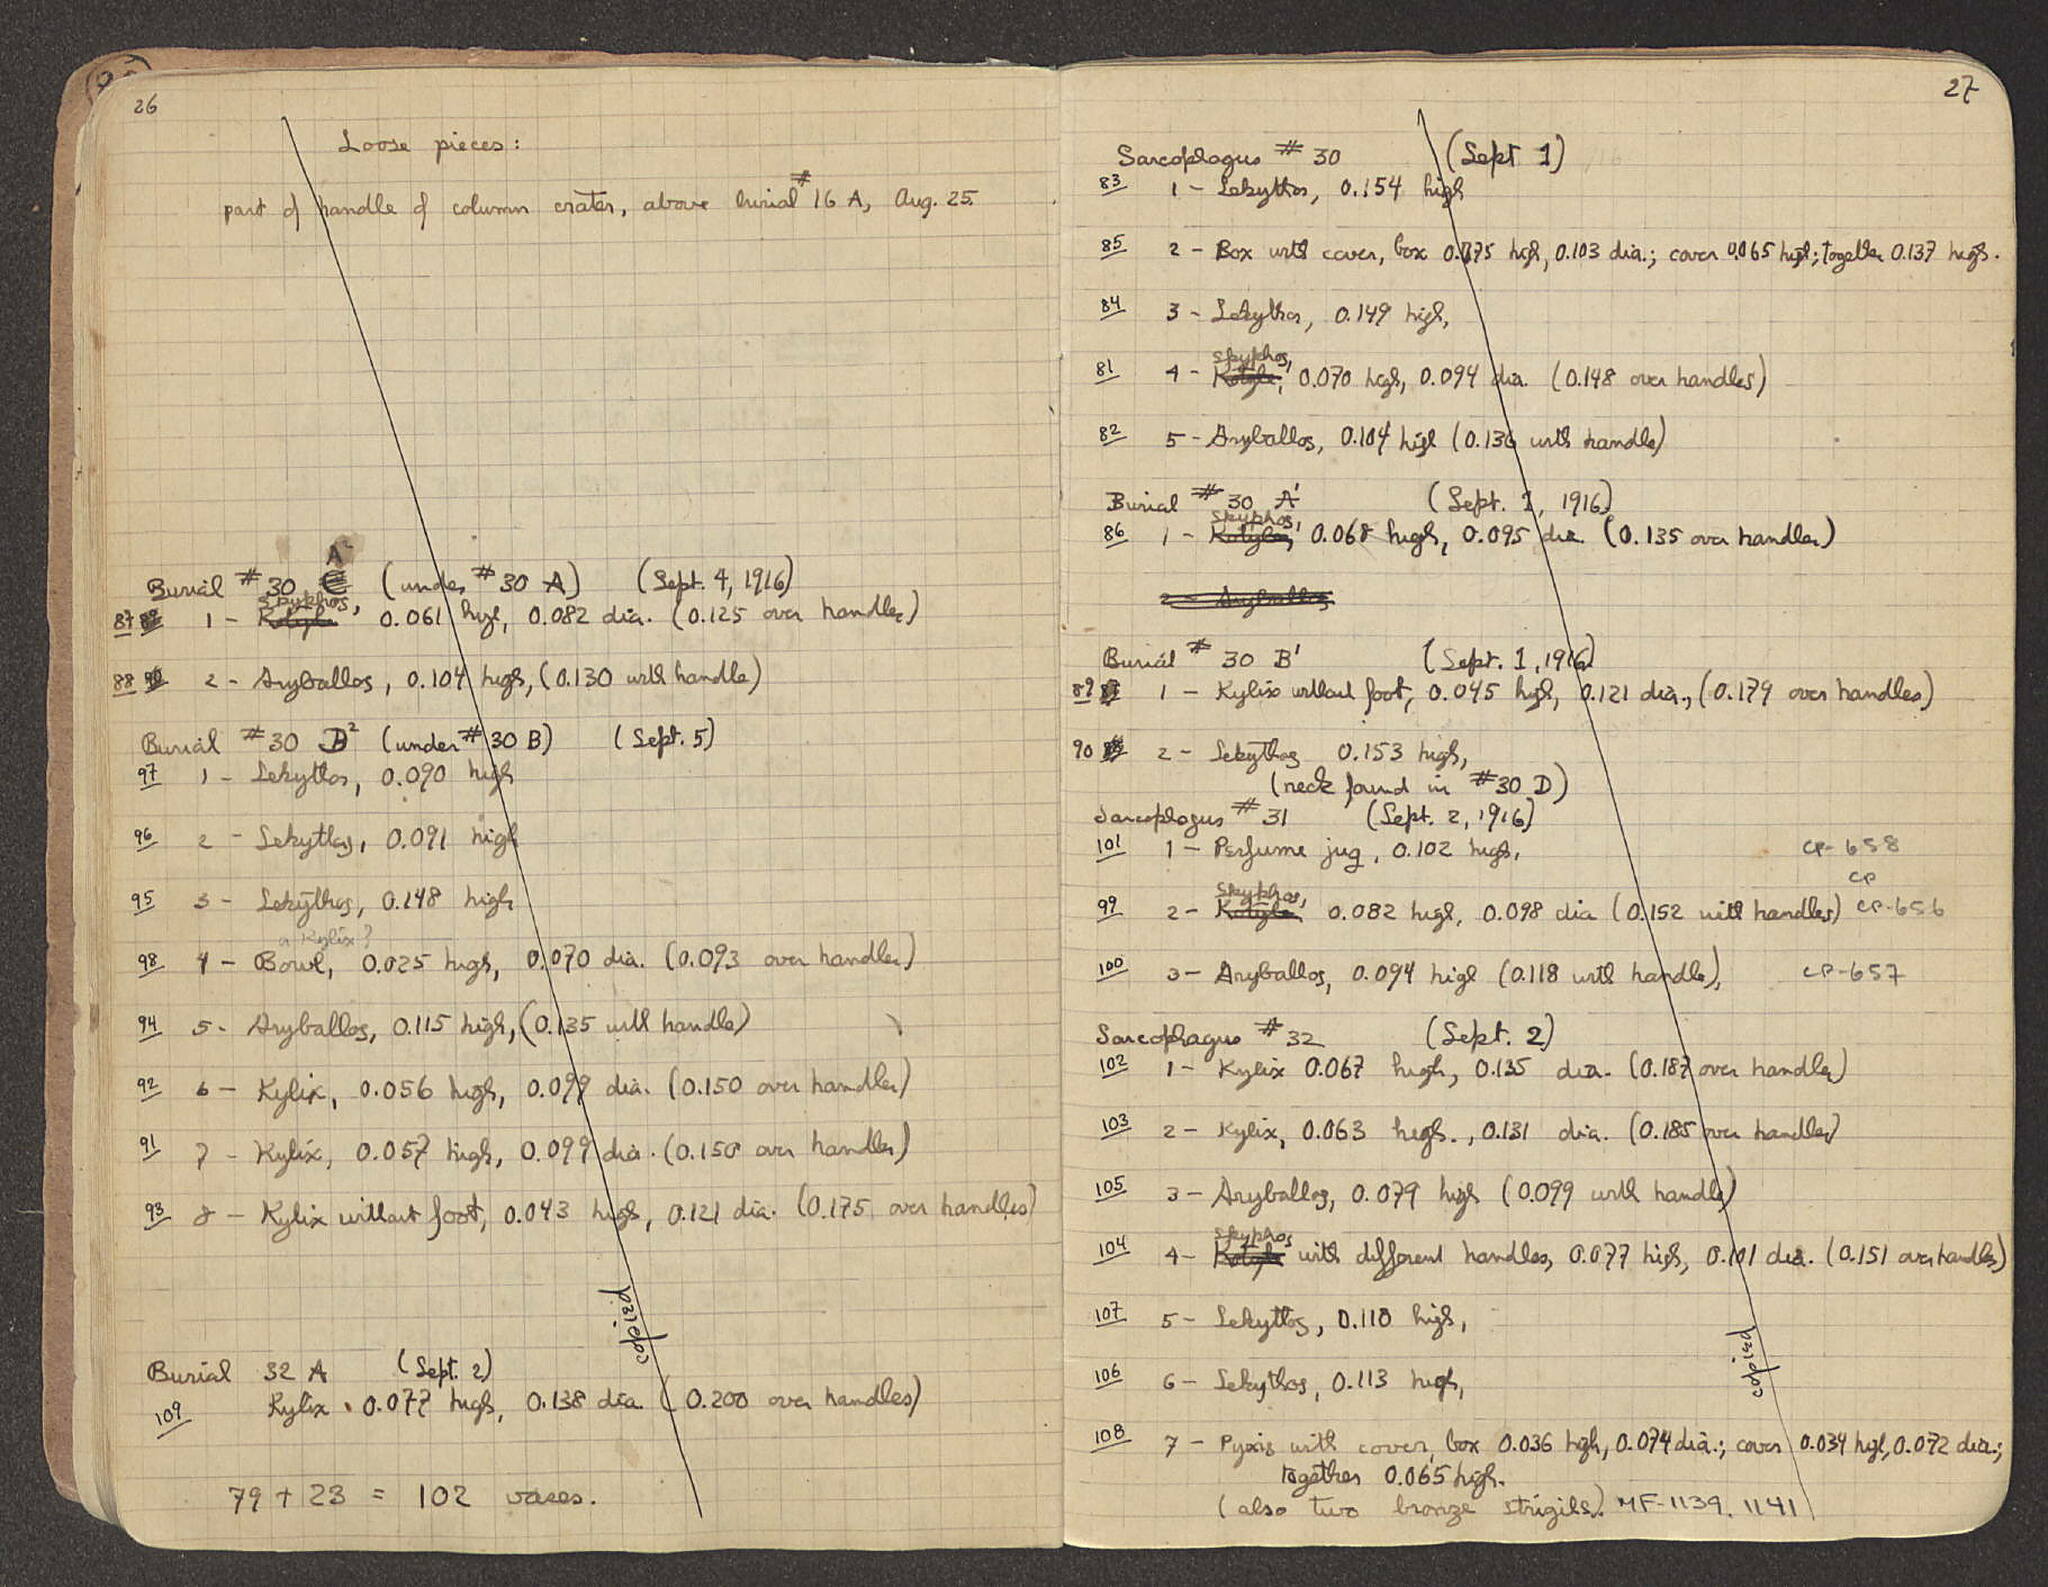 26
Loose pieces:
part of handle of column crater, above burial # 16 A, Aug. 25.
A²
Burial # 30 (under # 30 A) (Sept. 4, 1916)
Skyphos,
87 1 - Kotyle 0.061 high, 0.082 dia. (0.125 over handles)
88 2 - Aryballos, 0.104 high, (0.130 with handle)
Burial # 30 B² (under # 30 B) (Sept. 5)
97 1 - Lekythos, 0.090 high
96 2 - Lekythos, 0.091 high
95 3 - Lekythos, 0.148 high
a Kylix?
98 4 - Bowl, 0.025 high, 0.070 dia. (0.093 over handles)
94 5 - Aryballos, 0.115 high, (0.135 with handle)
92 6 - Kylix, 0.056 high, 0.099 dia. (0.150 over handles)
91 7 - Kylix, 0.057 high, 0.099 dia. (0.150 over handles)
93 8 - Kylix without foot, 0.043 high, 0.121 dia. (0.175 over handles)
copied
Burial 32 A (Sept. 2)
109 Kylix 0.077 high, 0.138 dia (0.200 over handles)
79 + 23 = 102 vases.
27
Sarcophagus # 30 (Sept 1)
83 1 - Lekythos, 0.154 high
85 2 - Box with cover, box 0.075 high, 0.103 dia.; cover 0.065 high; together 0.137 high.
84 3 - Lekythos, 0.149 high,
Skyphos,
81 4 - Kotyle, 0.070 high, 0.094 dia. (0.148 over handles)
82 5 - Aryballos, 0.104 high (0.136 with handle)
Burial # 30 A' (Sept. 1, 1916)
Skyphos,
86 1 - Kotyle, 0.068 high, 0.095 dia. (0.135 over handles)
2 - Aryballos
Burial # 30 B' (Sept. 1, 1916)
89 1 - Kylix without foot, 0.045 high, 0.121 dia., (0.179 over handles)
90 2 - Lekythos 0.153 high,
(neck found in # 30 D)
Sarcophagus # 31 (Sept. 2, 1916)
101 1 - Perfume jug, 0.102 high, CP-658
CP
Skyphos,
99 2 - Kotyle, 0.082 high, 0.098 dia (0.152 with handles) CP-656
100 3 - Aryballos, 0.094 high (0.118 with handle), CP-657
Sarcophagus # 32 (Sept. 2)
102 1 - Kylix 0.067 high, 0.135 dia. (0.187 over handles)
103 2 - Kylix, 0.063 high., 0.131 dia. (0.185 over handles)
105 3 - Aryballos, 0.079 high (0.099 with handle)
Skyphos
104 4 - Kotyle with different handles, 0.077 high, 0.101 dia. (0.151 over handles)
107 5 - Lekythos, 0.110 high,
106 6 - Lekythos, 0.113 high,
copied
108 7 - Pyxis with cover, box 0.036 high, 0.074 dia.; cover 0.034 high, 0.072 dia.;
together 0.065 high.
(also two bronze strigils). MF-1139. 1141